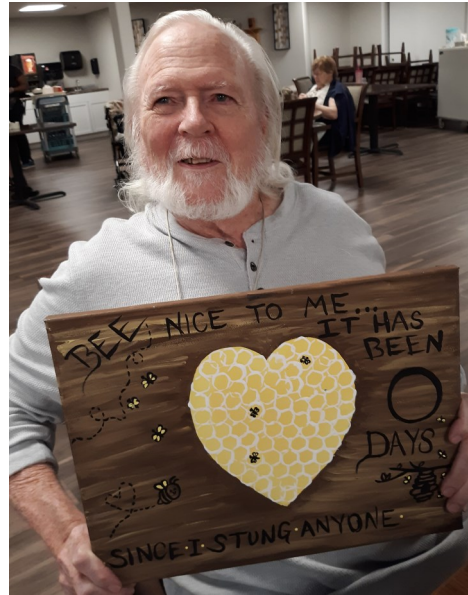 BEE NICE TO ME...
IT HAS
BEEN
0
DAYS
SINCE I STUNG ANYONE